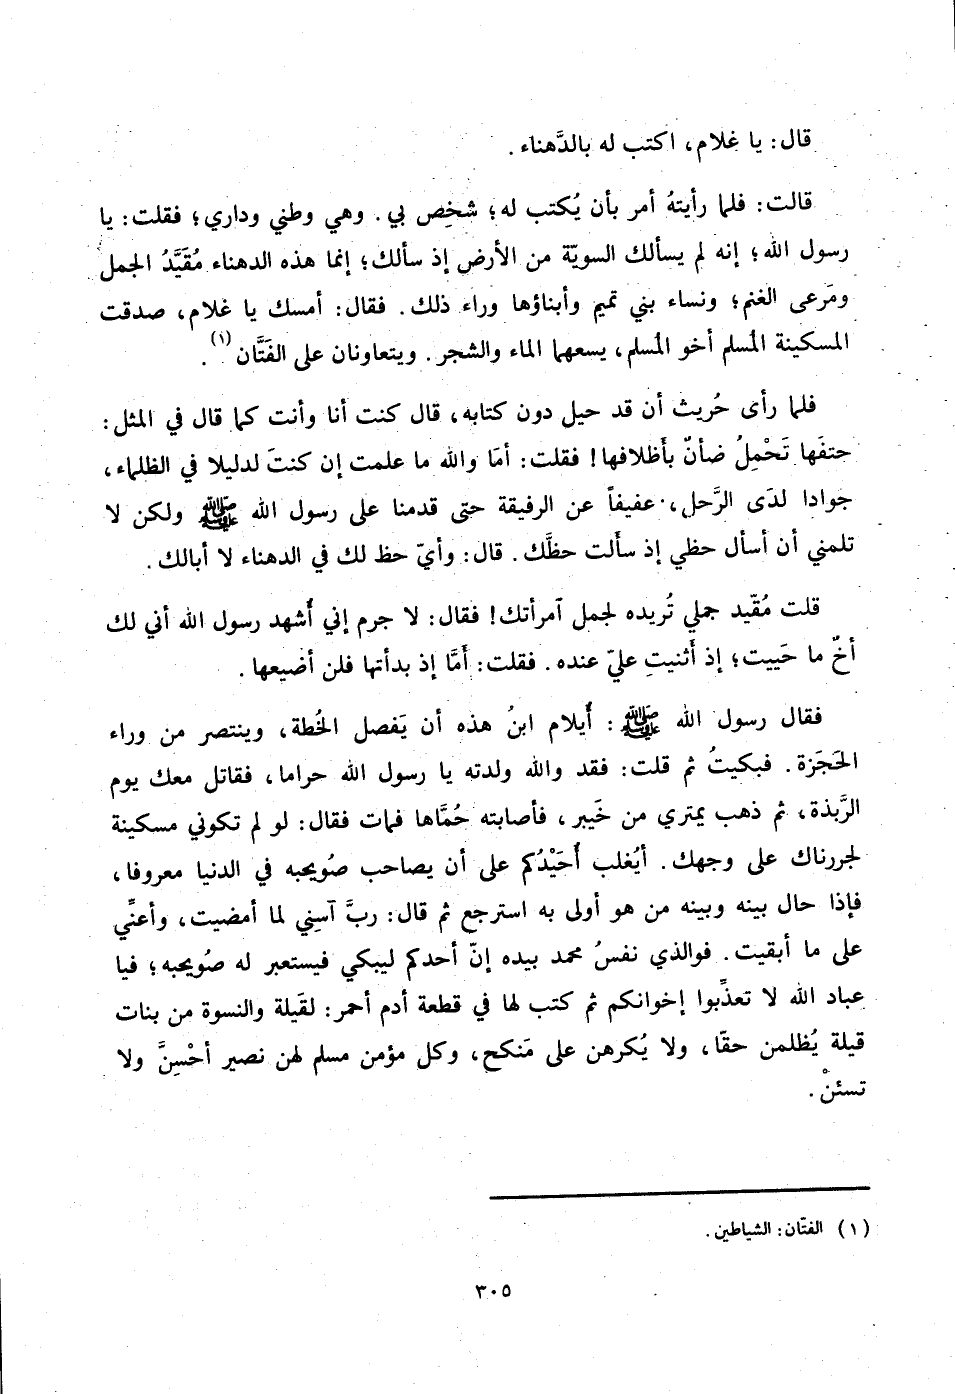 قال: يا غلام، اكتب له بالدَّهناء.
قالت: فلما رأيتهُ أمر بأن يُكتب له؛ شخِص بي. وهي وطني وداري؛ فقلت: يا
رسول الله؛ إنه لم يسألك السويّة من الأرض إذ سألك؛ إنما هذه الدهناء مُقَيَّدُ الجمل
ومَرعى الغنم؛ ونساء بني تميم وأبناؤها وراء ذلك. فقال: أمسك يا غلام، صدقت
المسكينة المُسلم أخو المُسلم، يسعهما الماء والشجر. ويتعاونان على الفَتَّان(١).
فلما رأى حُريث أن قد حيل دون كتابه، قال كنت أنا وأنت كما قال في المثل:
حتفَها تَحْمِلُ ضأنٌ بأظلافها! فقلت: أمَا والله ما علمت إن كنتَ لدليلا في الظلماء،
جوادا لدَى الرَّحل، عفيفاً عن الرفيقة حتى قدمنا على رسول الله ﷺ ولكن لا
تلمني أن أسأل حظي إذ سألت حظَّك. قال: وأيّ حظ لك في الدهناء لا أبالك.
قلت مُقّيد جملي تُريده لجمل آمرأتك! فقال: لا جرم إني أُشهد رسول الله أني لك
أخٌ ما حَييت؛ إذ أثنيتِ عليّ عنده. فقلت: أمَّا إذ بدأتها فلن أضيعها.
فقال رسول الله ﷺ: أيلام ابنُ هذه أن يَفصل الخُطة، وينتصر من وراء
الحَجَزة. فبكيتُ ثم قلت: فقد والله ولدته يا رسول الله حراما، فقاتل معك يوم
الرَّبذة، ثم ذهب يمتري من خَيبر، فأصابته حُمَّاها فمات فقال: لو لم تكوني مسكينة
لجررناك على وجهك. أيُغلب أُحَيْدُكم على أن يصاحب صُويحبه في الدنيا معروفا،
فإذا حال بينه وبينه من هو أولى به استرجع ثم قال: ربَّ آسِني لما أمضيت، وأعنِّي
على ما أبقيت. فوالذي نفسُ محمد بيده إنّ أحدكم ليبكي فيستعبر له صُويحبه؛ فيا
عباد الله لا تعذِّبوا إخوانكم ثم كتب لها في قطعة أدم أحمر: لقَيلة والنسوة من بنات
قيلة يُظلمن حقّا، ولا يُكرهن على مَنكح، وكل مؤمن مسلم لهن نصير أحْسِنَّ ولا
تسئنْ.
(١) الفتّان: الشياطين.
٣٠٥